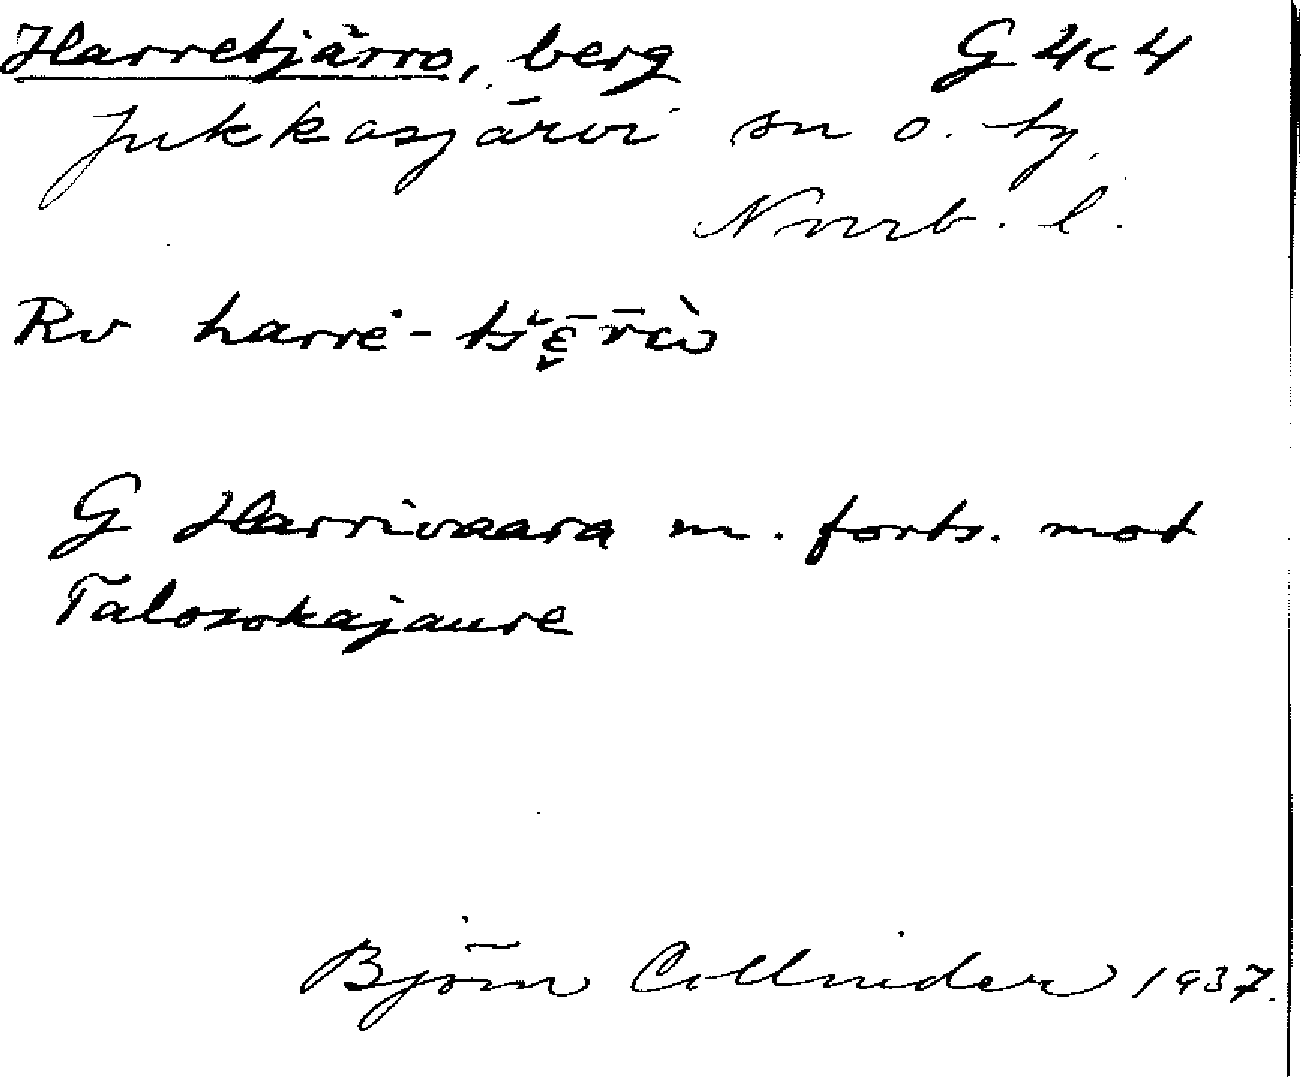 Harretjårro, berg G 4c4
Jukkasjärvi sn o. tg,
Norrb. l.
Rv harrė-
G Harrivaara m. forts. mot
Talosokajaure
Björn Collinder 1937.